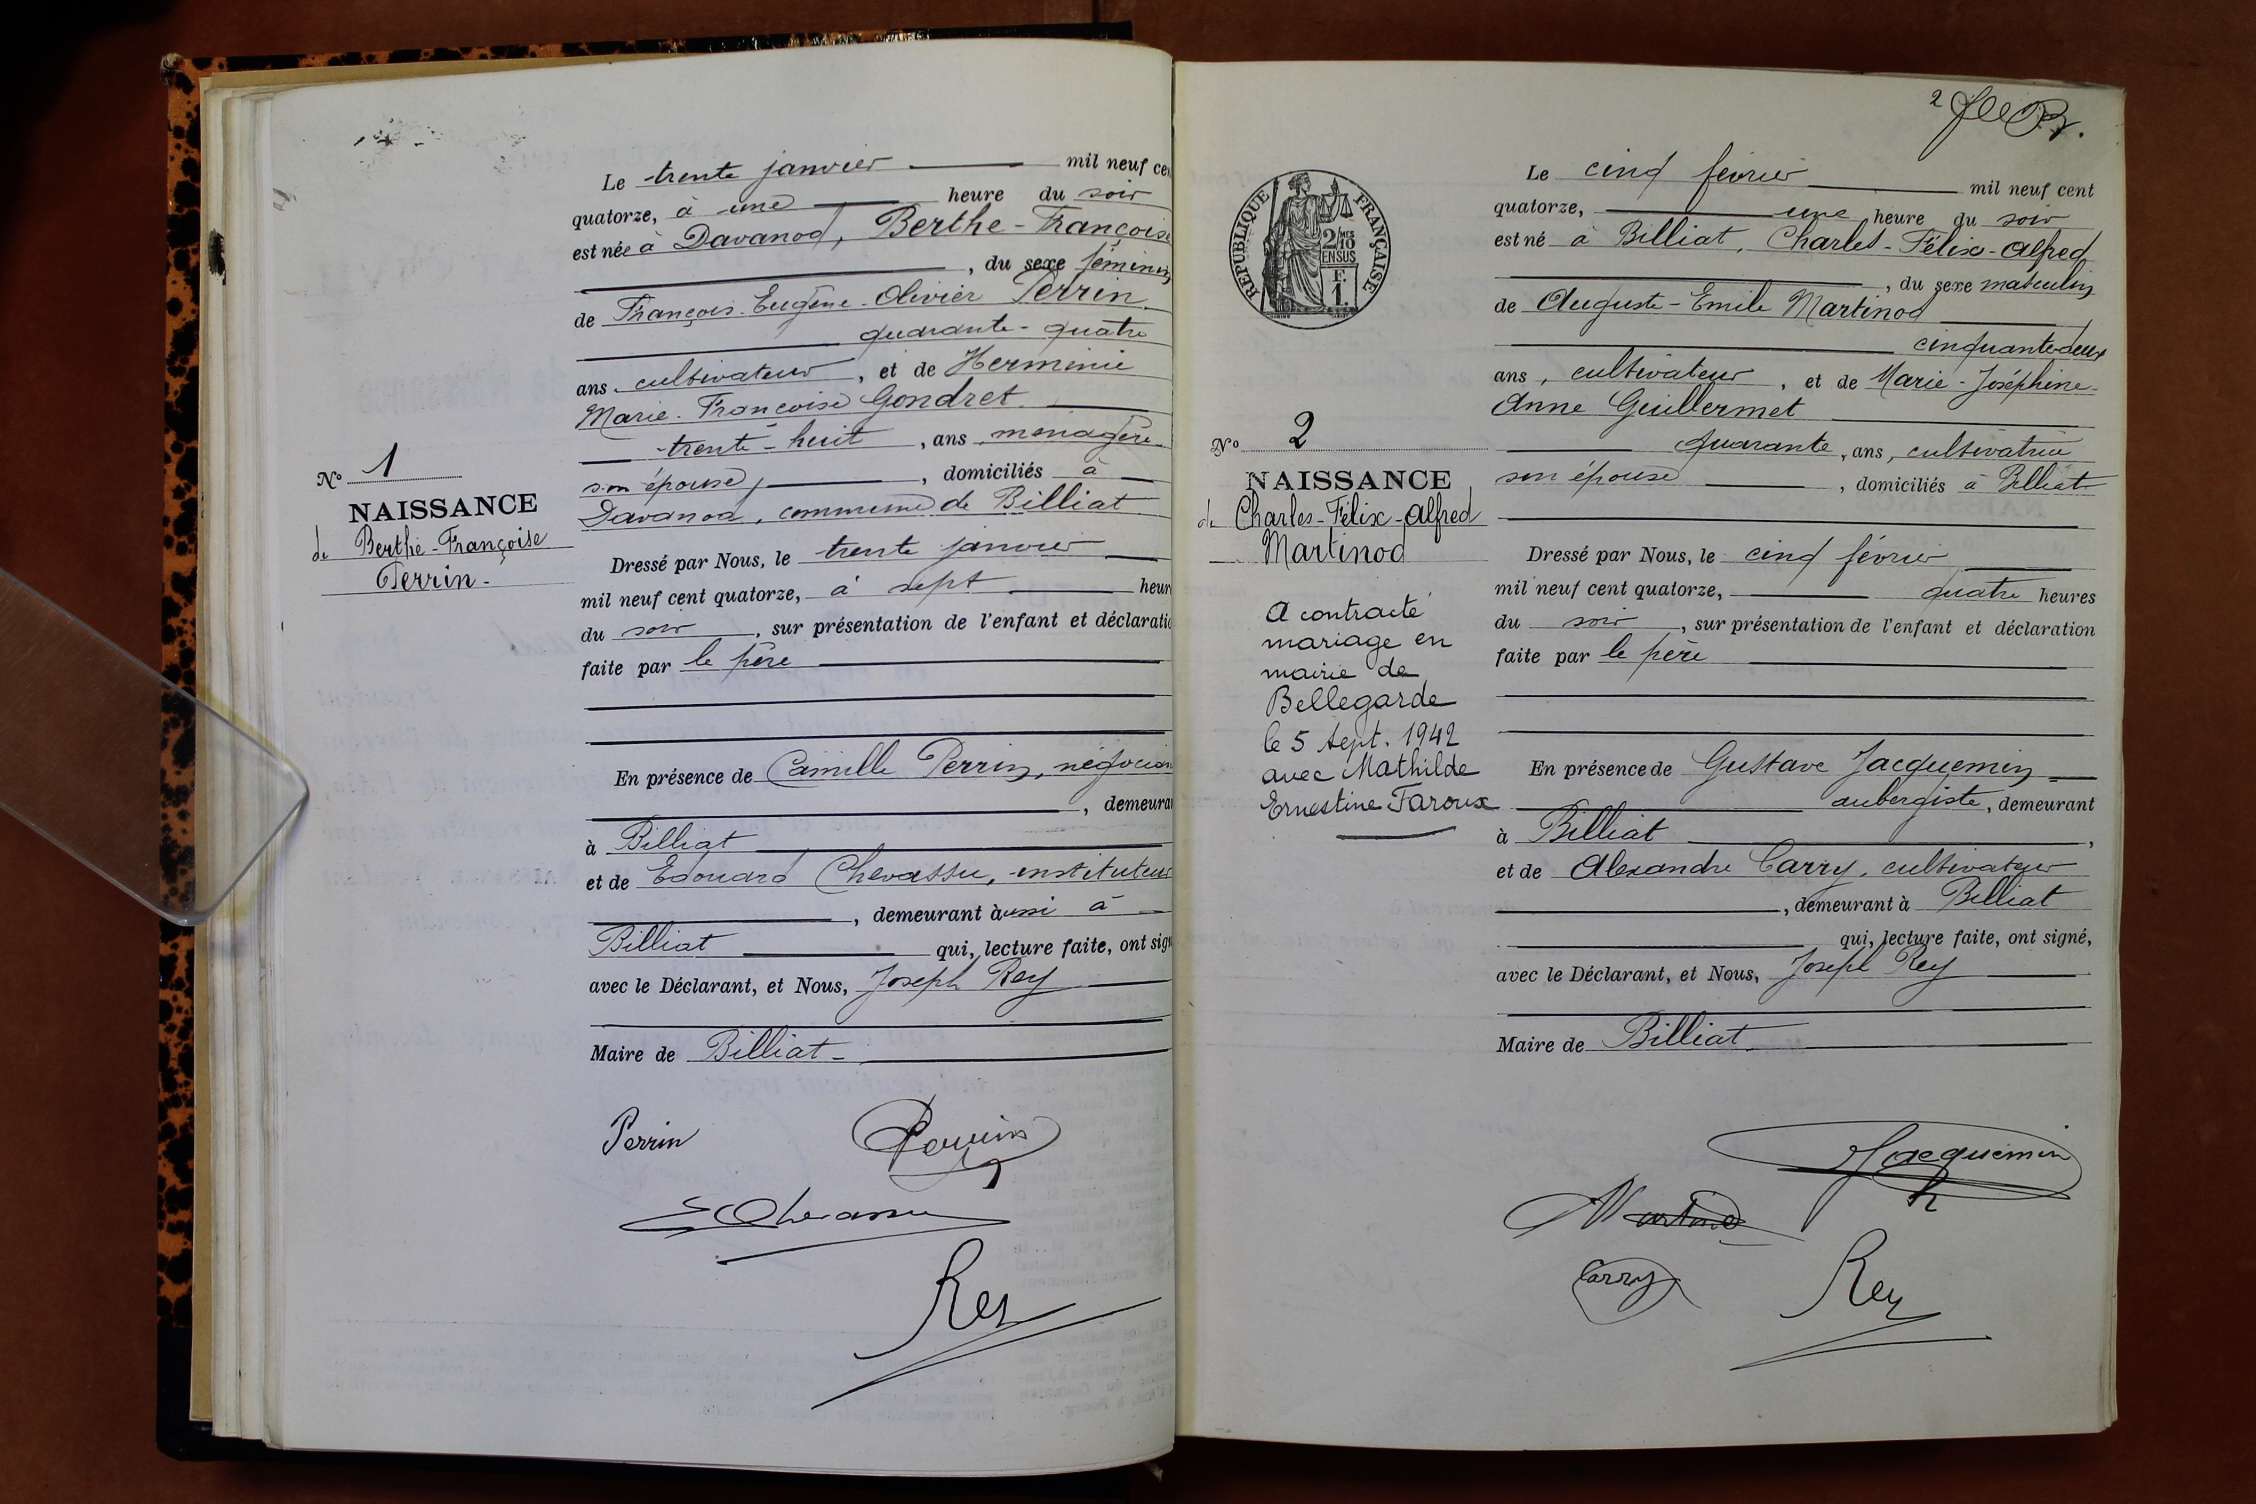 Le trente janvier mil neuf ce
quatorze, à une heure du soir
est née à Davanod, Berthe-Françoise
, du sexe féminin
de François-Eugène-Olivier Perrin
quarante-quatre
ans cultivateur, et de Herminie
Marie-Françoise Gondret
trente-huit, ans ménagère
son épouse, domiciliés à
Davanod, commune de Billiat
No 1
NAISSANCE
de Berthe-Françoise
Perrin-
Dressé par Nous, le trente janvier
mil neuf cent quatorze, à sept heur
du soir, sur présentation de l'enfant et déclaratio
faite par le père
En présence de Camille Perrin, négocian
, demeura
à Billiat
et de Edouard Chevassu, instituteur
, demeurant aussi à
Billiat qui, lecture faite, ont sign
avec le Déclarant, et Nous, Joseph Rey
Maire de Billiat-
Perrin
Perrin
E Chevassu
Rey
2
RÉPUBLIQUE FRANÇAISE
2/10 MES
EN SUS
F.
1.
Le cinq février mil neuf cent
quatorze, une heure du soir
est né à Billiat, Charles-Félix-Alfred
, du sexe masculin
de Auguste-Emile Martinod
cinquante-deux
ans, cultivateur, et de Marie-Joséphine-
Anne Guillermet
quarante, ans, cultivatrice
son épouse, domiciliés à Billiat
No 2
NAISSANCE
de Charles-Félix-Alfred
Martinod
A contracté
mariage en
mairie de
Bellegarde
le 5 Sept. 1942
avec Mathilde
Ernestine Faroux
Dressé par Nous, le cinq février
mil neuf cent quatorze, quatre heures
du soir, sur présentation de l'enfant et déclaration
faite par le père
En présence de Gustave Jacquemin
aubergiste, demeurant
à Billiat,
et de Alexandre Carry, cultivateur
, demeurant à Billiat
qui, lecture faite, ont signé,
avec le Déclarant, et Nous, Joseph Rey
Maire de Billiat
Jacquemin
Martinod
Carry
Rey